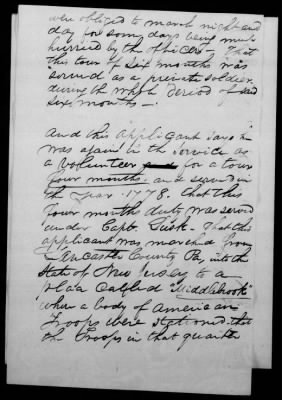 were obliged to march night and
day for som days being much
hurried by the officers. That
this tour of six months was
served as a private soldier
during the whole period of said
six months —.
And this applicant says he
was again in the service as
a volunteer for a tour
four months. and served in
the year 1778. that this
four month duty was served
under Capt. That this
applicant was marched from
Lancaster County Pa, into the
State of New Jersey to a
place called "Middlebrook"
where a body of American
Troops were stationed. that
the troops in that quarter